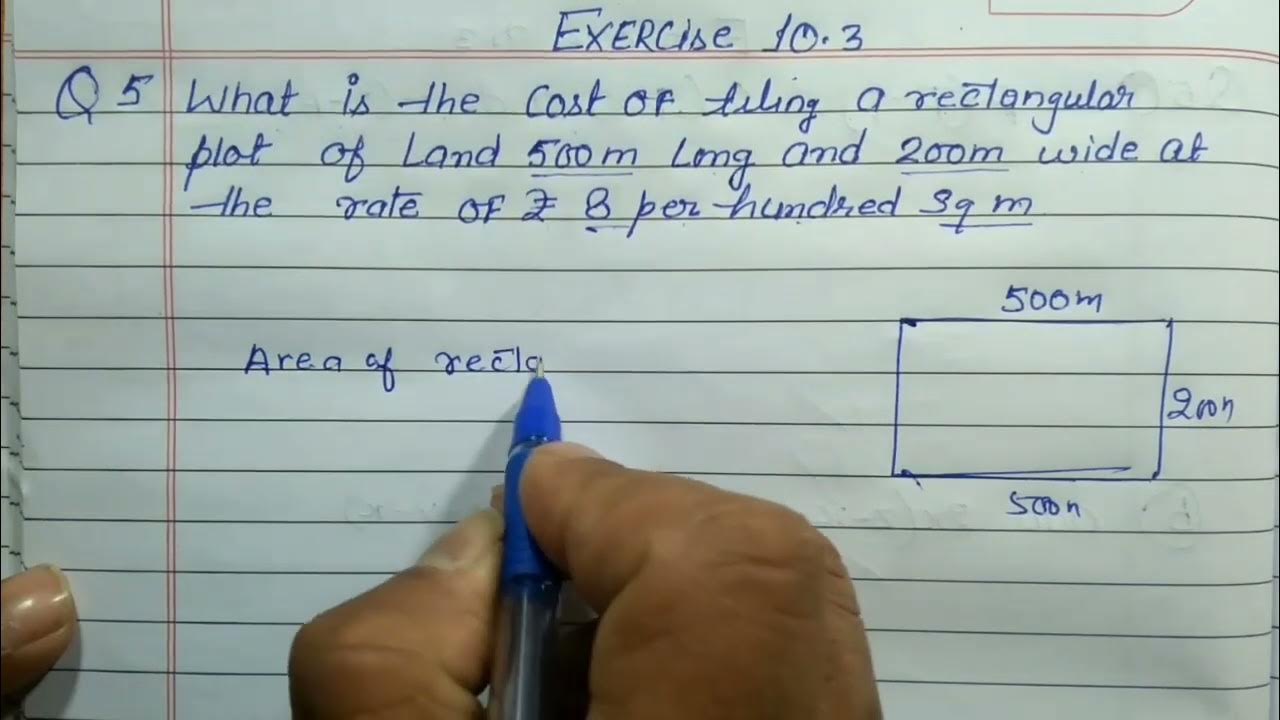 EXERCISE 10.3
Q 5 What is the Cost OF tiling a rectangular
plot of Land 500m Long and 200m wide at
the rate OF ₹ 8 per hundred Sq m
500m
Area of recta
200m
500m